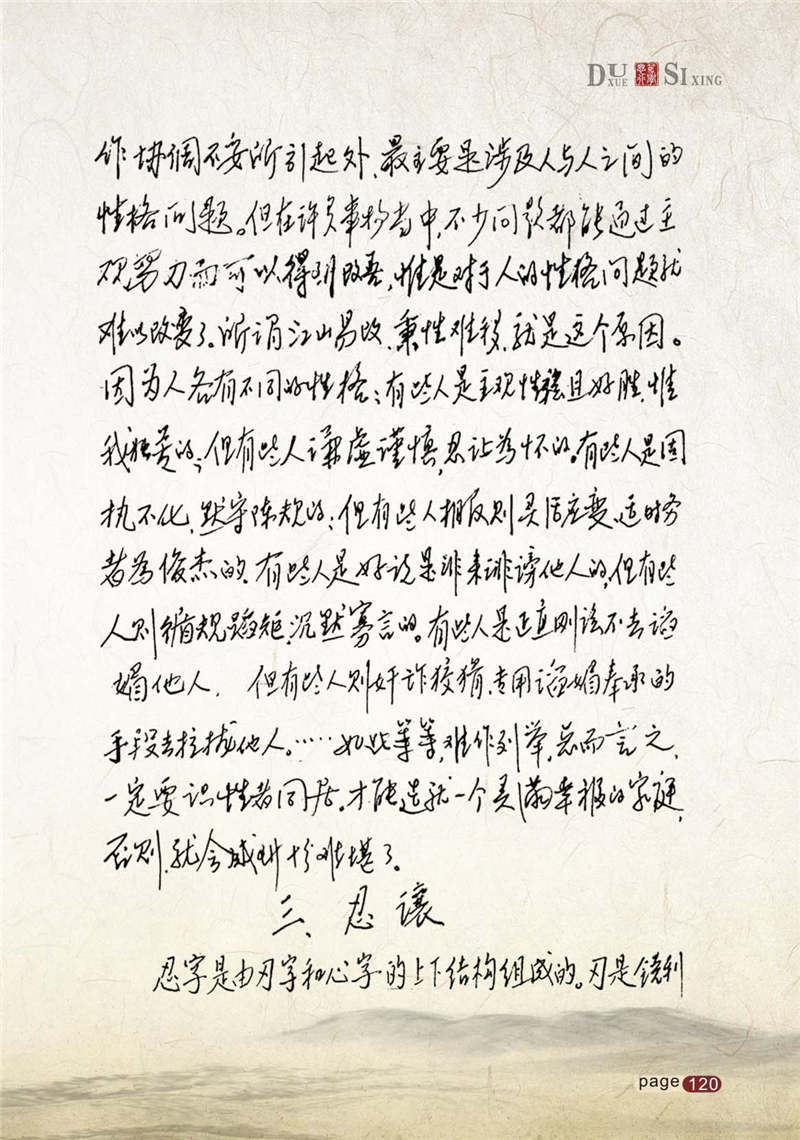 DU XUE SI XING
作协调不妥所引起外,最主要是涉及人与人之间的
性格问题。但在许多事物当中,不少问题都能通过主
观努力而可以得到改善,惟是对于人的性格问题就
难以改变了。所谓江山易改,秉性难移,就是这个原因。
因为人各有不同的性格;有些人是主观性强且好胜,惟
我独尊的;但有些人谦虚谨慎,忍让为怀的。有些人是固
执不化,默守陈规的;但有些人相反则灵活应变、适时务
者为俊杰的,有些人是好说是非来诽谤他人的,但有些
人则循规蹈矩,沉默寡言的。有些人是正直刚法不去谄
媚他人, 但有些人则奸诈狡猾、专用谄媚奉承的
手段去拉拢他人。……如此等等,难作列举,总而言之,
一定要识性者同居。才能造就一个美满幸福的家庭,
否则,就会感到十分难堪了。
三、忍讓
忍字是由刃字和心字的上下结构组成的。刃是锐利
page 120